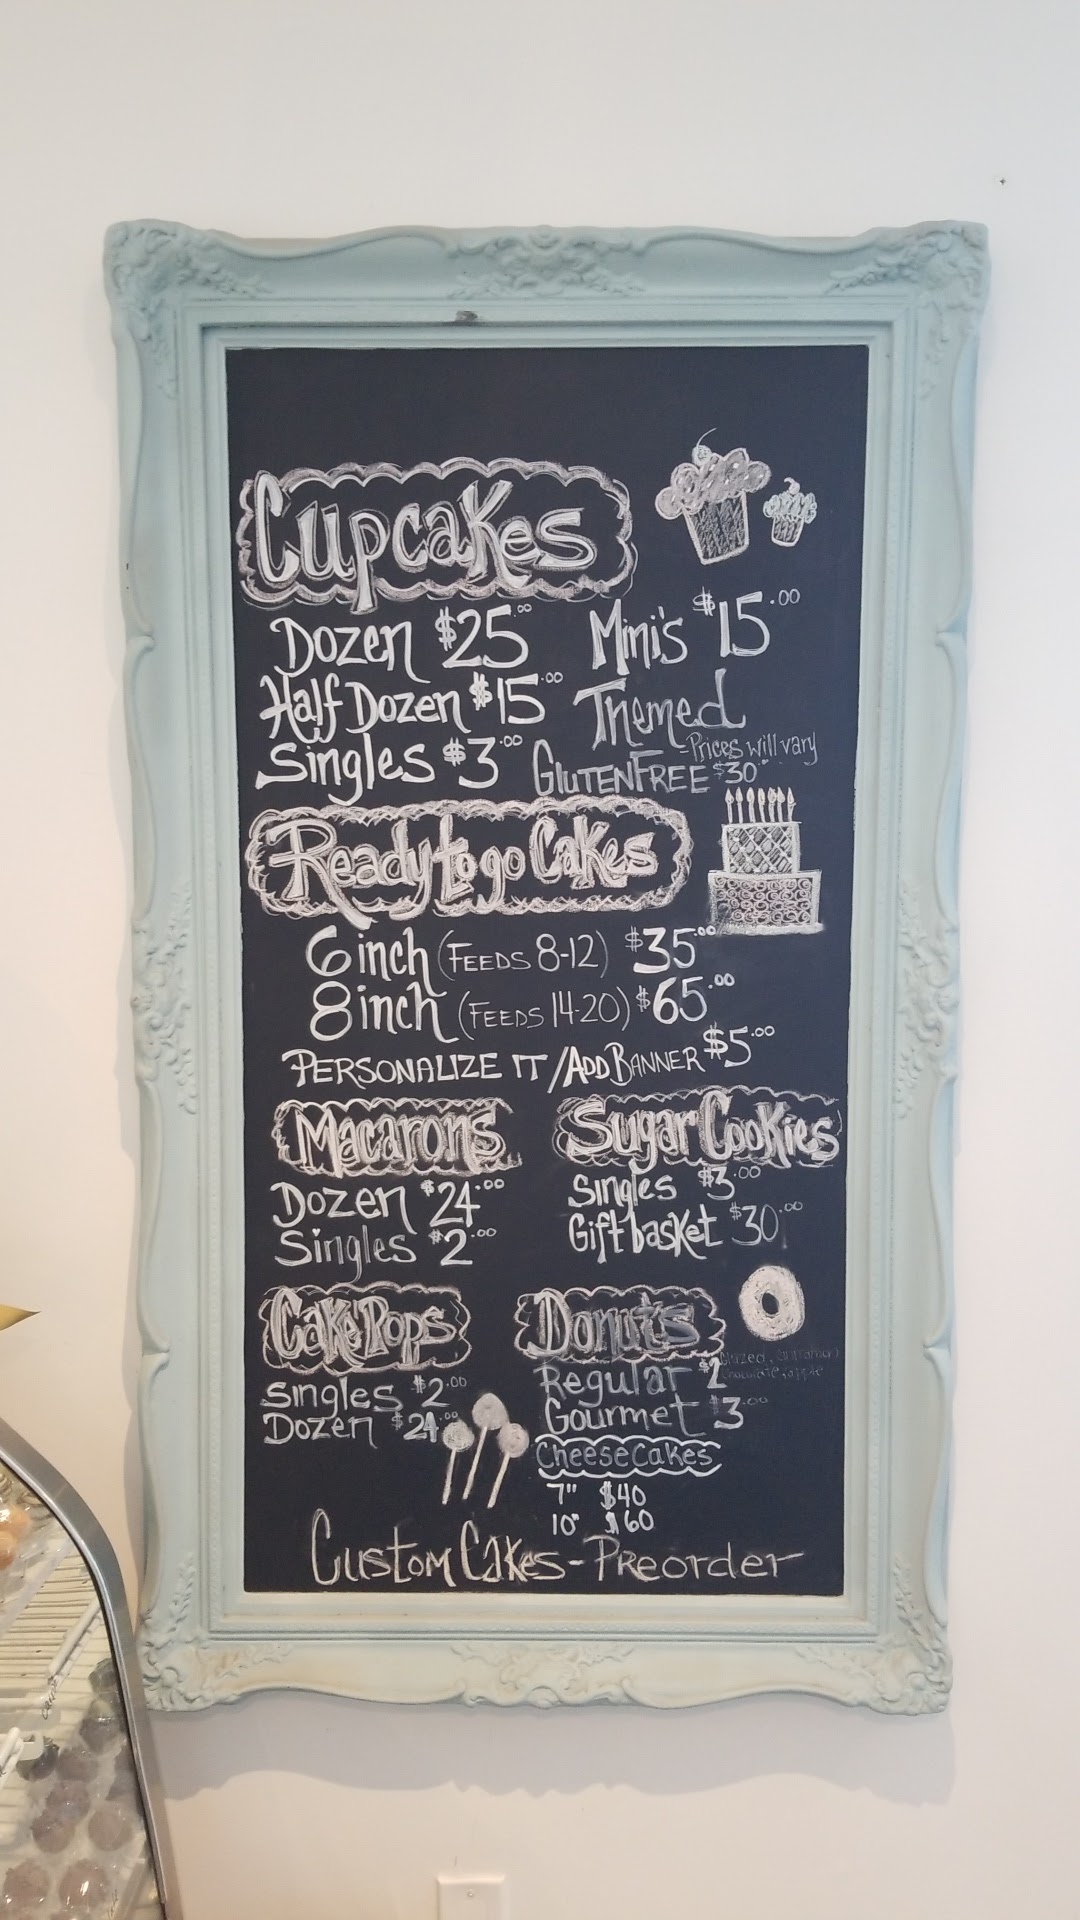 Cupcakes
Dozen $25.00
Half Dozen $15.00
Singles $3.00
Mini's $15.00
Themed
-Prices will vary
GLUTEN FREE $30
Ready to go Cakes
6 inch (FEEDS 8-12) $35.00
8 inch (FEEDS 14-20) $65.00
PERSONALIZE IT/ADD BANNER $5.00
Macarons
Dozen $24.00
Singles $2.00
Sugar Cookies
Singles $3.00
Gift basket $30.00
Cake Pops
Singles $2.00
Dozen $24.00
Donuts
Regular $2
Glazed, cinnamon
chocolate, apple
Gourmet $3.00
CheeseCakes
7" $40
10" $60
Custom Cakes - Preorder